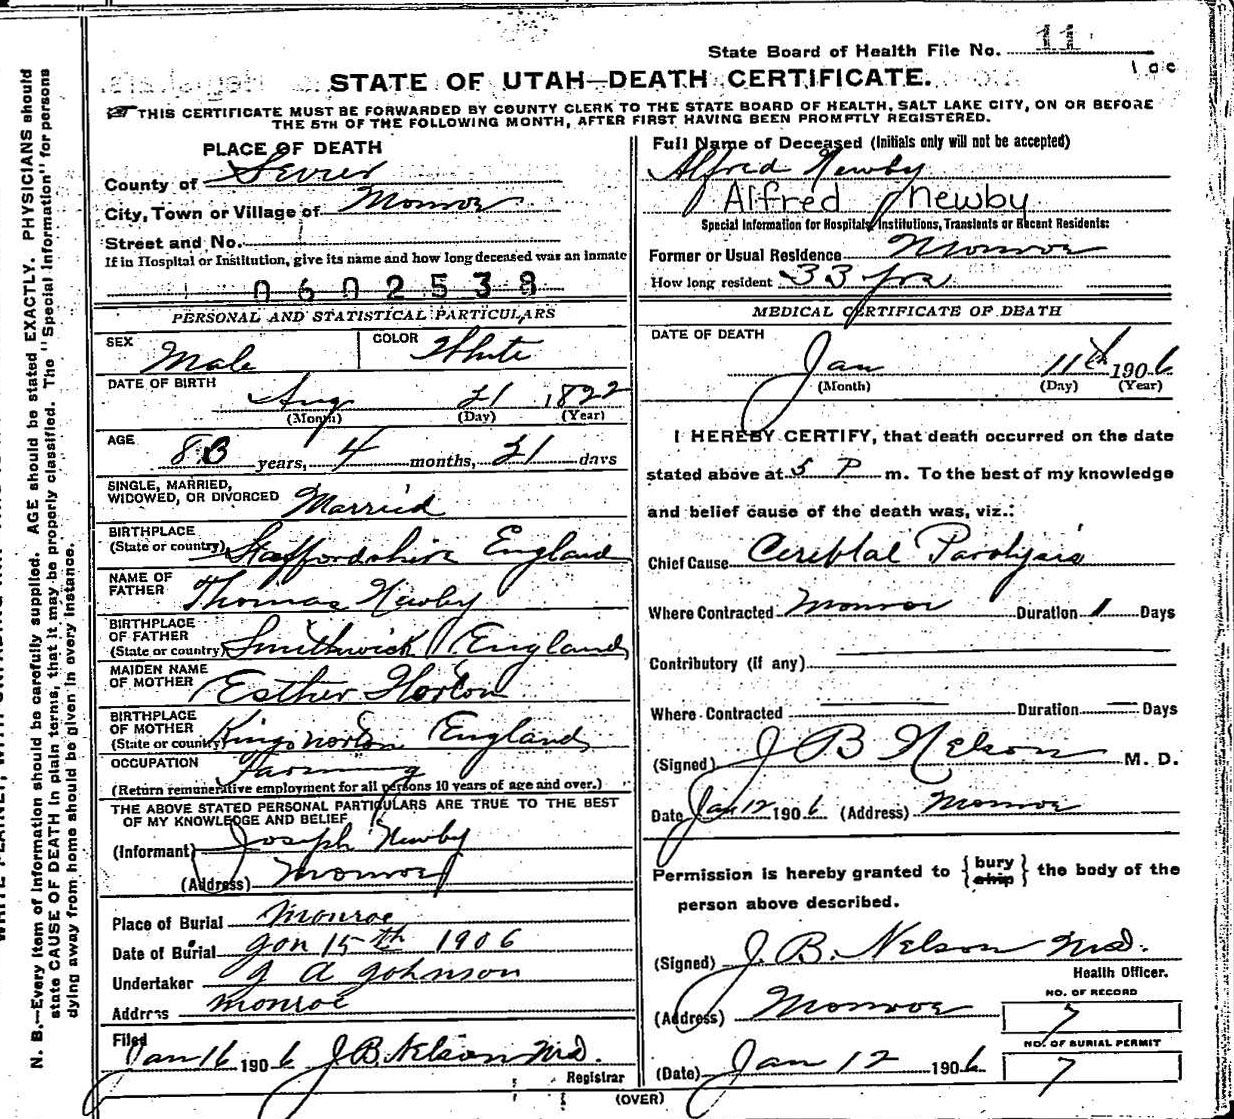 State Board of Health File No. 11
STATE OF UTAH—DEATH CERTIFICATE.
THIS CERTIFICATE MUST BE FORWARDED BY COUNTY CLERK TO THE STATE BOARD OF HEALTH, SALT LAKE CITY, ON OR BEFORE
THE 5TH OF THE FOLLOWING MONTH, AFTER FIRST HAVING BEEN PROMPTLY REGISTERED.
PLACE OF DEATH
County of Sevier
City, Town or Village of Monroe
Street and No.
If in Hospital or Institution, give its name and how long deceased was an inmate
0602538
PERSONAL AND STATISTICAL PARTICULARS
SEX Male COLOR White
DATE OF BIRTH
Aug 21 1822
(Month) (Day) (Year)
AGE
83 years, 4 months, 21 days
SINGLE, MARRIED,
WIDOWED, OR DIVORCED Married
BIRTHPLACE
(State or country) Staffordshire England
NAME OF
FATHER Thomas Newby
BIRTHPLACE
OF FATHER
(State or country) Smithwick England
MAIDEN NAME
OF MOTHER Esther Horton
BIRTHPLACE
OF MOTHER
(State or country) Kingsnorton England
OCCUPATION Farming
(Return remunerative employment for all persons 10 years of age and over.)
THE ABOVE STATED PERSONAL PARTICULARS ARE TRUE TO THE BEST
OF MY KNOWLEDGE AND BELIEF
(Informant) Joseph Newby
(Address) Monroe
Place of Burial Monroe
Date of Burial Jan 15th 1906
Undertaker J A Johnson
Address Monroe
Filed
Jan 16 1906 J B Nelson Md.
Registrar
Full Name of Deceased (Initials only will not be accepted)
Alfred Newby
Alfred Newby
Special Information for Hospitals, Institutions, Transients or Recent Residents:
Former or Usual Residence Monroe
How long resident 33 yrs
MEDICAL CERTIFICATE OF DEATH
DATE OF DEATH
Jan 11th 1906
(Month) (Day) (Year)
I HEREBY CERTIFY, that death occurred on the date
stated above at 5 P m. To the best of my knowledge
and belief cause of the death was, viz.:
Chief Cause Cereblal Paralysis
Where Contracted Monroe Duration 1 Days
Contributory (if any)
Where Contracted — Duration — Days
(Signed) J B Nelson M. D.
Date Jan 12 1906 (Address) Monroe
Permission is hereby granted to {bury ship} the body of the
person above described.
(Signed) J. B. Nelson Md.
Health Officer.
(Address) Monroe
NO. OF RECORD
7
NO. OF BURIAL PERMIT
7
(Date) Jan 12 1906
(OVER)
N. B.—Every item of information should be carefully supplied. AGE should be stated EXACTLY. PHYSICIANS should
state CAUSE OF DEATH in plain terms, that it may be properly classified. The "Special Information" for persons
dying away from home should be given in every instance.